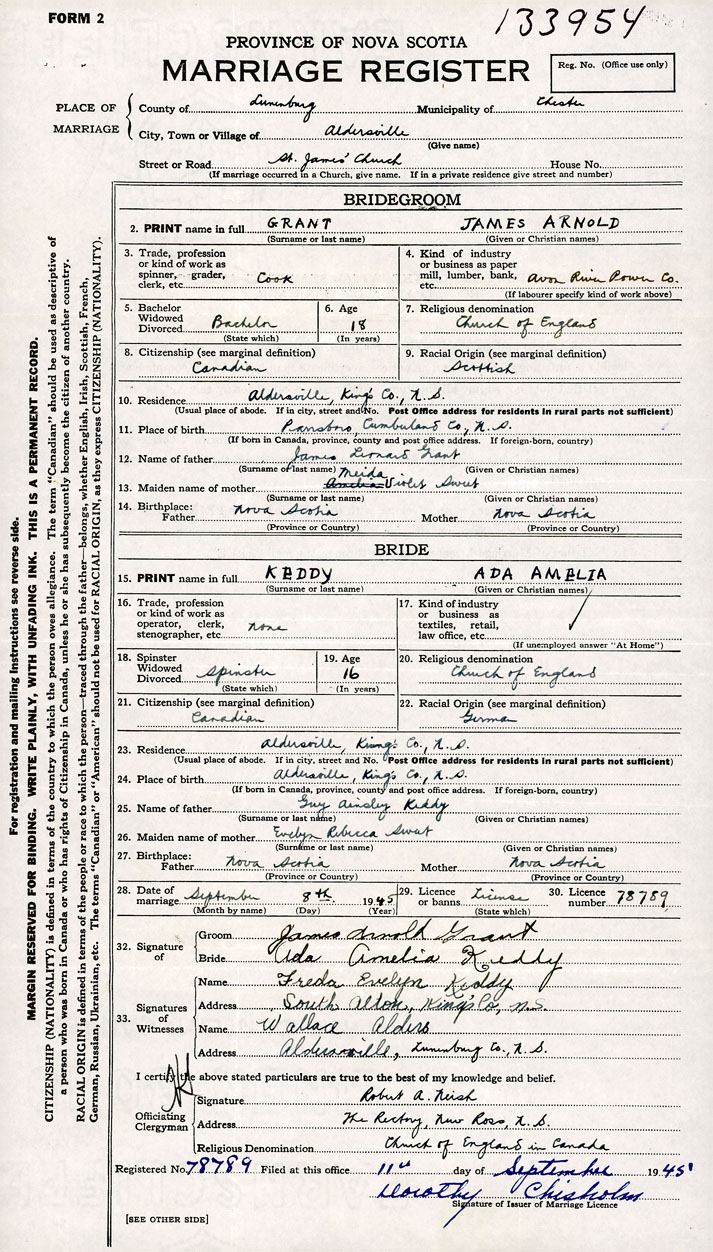 FORM 2
133954
PROVINCE OF NOVA SCOTIA
MARRIAGE REGISTER
Reg. No. (Office use only)
PLACE OF MARRIAGE
County of Lunenburg Municipality of Chester
City, Town or Village of Aldersville
(Give name)
Street or Road St. James' Church House No.
(If marriage occurred in a Church, give name. If in a private residence give street and number)
BRIDEGROOM
2. PRINT name in full GRANT JAMES ARNOLD
(Surname or last name) (Given or Christian names)
3. Trade, profession or kind of work as spinner, grader, clerk, etc. Cook
4. Kind of industry or business as paper mill, lumber, bank, etc. Avon River Power Co.
(If labourer specify kind of work above)
5. Bachelor Widowed Divorced Bachelor
(State which)
6. Age 18
(In years)
7. Religious denomination
Church of England
8. Citizenship (see marginal definition)
Canadian
9. Racial Origin (see marginal definition)
Scottish
10. Residence Aldersville, King's Co., N. S.
(Usual place of abode. If in city, street and No. Post Office address for residents in rural parts not sufficient)
11. Place of birth Parrsboro, Cumberland Co., N. S.
(If born in Canada, province, county and post office address. If foreign-born, country)
12. Name of father James Leonard Grant
(Surname or last name) (Given or Christian names)
13. Maiden name of mother Meida Violet Swet
(Surname or last name) (Given or Christian names)
14. Birthplace: Father Nova Scotia Mother Nova Scotia
(Province or Country) (Province or Country)
BRIDE
15. PRINT name in full KEDDY ADA AMELIA
(Surname or last name) (Given or Christian names)
16. Trade, profession or kind of work as operator, clerk, stenographer, etc. none
17. Kind of industry or business as textiles, retail, law office, etc.
(If unemployed answer "At Home")
18. Spinster Widowed Divorced Spinster
(State which)
19. Age 16
(In years)
20. Religious denomination
Church of England
21. Citizenship (see marginal definition)
Canadian
22. Racial Origin (see marginal definition)
German
23. Residence Aldersville, King's Co., N. S.
(Usual place of abode. If in city, street and No. Post Office address for residents in rural parts not sufficient)
24. Place of birth Aldersville, King's Co., N. S.
(If born in Canada, province, county and post office address. If foreign-born, country)
25. Name of father Guy Ainsley Keddy
(Surname or last name) (Given or Christian names)
26. Maiden name of mother Evelyn Rebecca Swet
(Surname or last name) (Given or Christian names)
27. Birthplace: Father Nova Scotia Mother Nova Scotia
(Province or Country) (Province or Country)
28. Date of marriage September 8th. 1945
(Month by name) (Day) (Year)
29. Licence or banns License
(State which)
30. Licence number 78789
32. Signature of
Groom James Arnold Grant
Bride Ada Amelia Keddy
33. Signatures of Witnesses
Name Freda Evelyn Keddy
Address South Alton, King's Co, N.S.
Name Wallace Alders
Address Aldersville, Lunenburg Co., N. S.
I certify the above stated particulars are true to the best of my knowledge and belief.
Officiating Clergyman
Signature Robert A. Nish
Address The Rectory, New Ross, N. S.
Religious Denomination Church of England in Canada
Registered No. 78789 Filed at this office 11th day of September 1945
Dorothy Chisholm
Signature of Issuer of Marriage Licence
[SEE OTHER SIDE]
For registration and mailing instructions see reverse side.
MARGIN RESERVED FOR BINDING. WRITE PLAINLY, WITH UNFADING INK. THIS IS A PERMANENT RECORD.
CITIZENSHIP (NATIONALITY) is defined in terms of the country to which the person owes allegiance. The term "Canadian" should be used as descriptive of
a person who was born in Canada or who has rights of Citizenship in Canada, unless he or she has subsequently become the citizen of another country.
RACIAL ORIGIN is defined in terms of the people or race to which the person—traced through the father—belongs, whether English, Irish, Scottish, French,
German, Russian, Ukrainian, etc. The terms "Canadian" or "American" should not be used for RACIAL ORIGIN, as they express CITIZENSHIP (NATIONALITY).